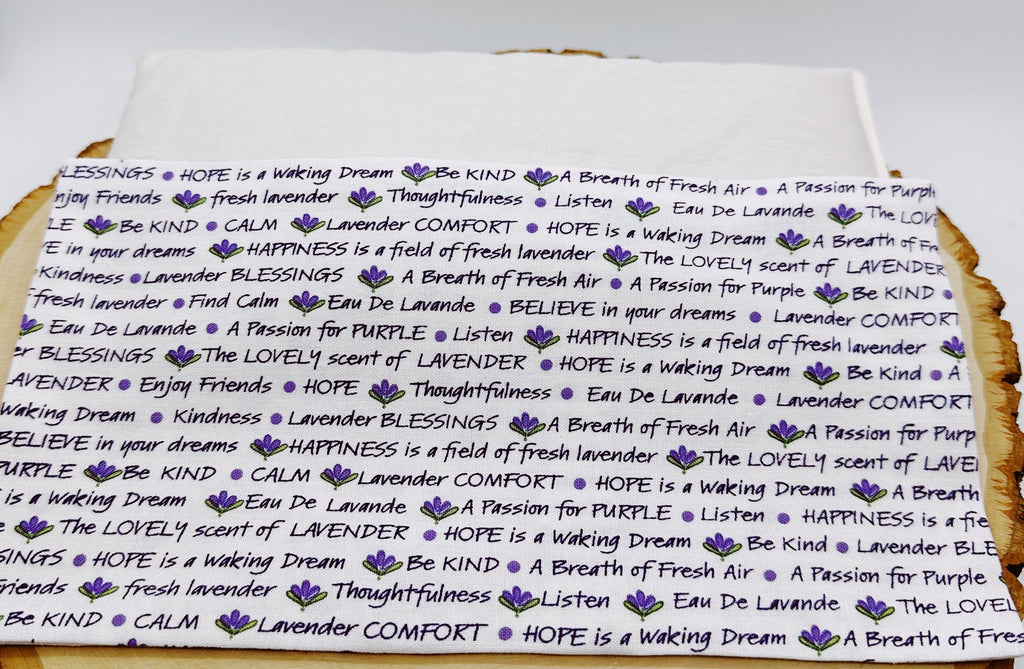 LESSINGS HOPE is a Waking Dream Be KIND A Breath of Fresh Air A Passion for Purpl
njoy Friends fresh lavender Thoughtfulness Listen Eau De Lavande The LOV
LE Be KIND CALM Lavender COMFORT HOPE is a Waking Dream A Breath of Fre
E in your dreams HAPPINESS is a field of fresh lavender The LOVELY scent of LAVENDER
Kindness Lavender BLESSINGS A Breath of Fresh Air A Passion for Purple Be KIND
fresh lavender Find Calm Eau De Lavande BELIEVE in your dreams Lavender COMFORT
Eau De Lavande A Passion for PURPLE Listen HAPPINESS is a field of fresh lavender
er BLESSINGS The LOVELY scent of LAVENDER HOPE is a Waking Dream Be Kind A
AVENDER Enjoy Friends HOPE Thoughtfulness Eau De Lavande Lavender COMFORT
Waking Dream Kindness Lavender BLESSINGS A Breath of Fresh Air A Passion for Purp
BELIEVE in your dreams HAPPINESS is a field of fresh lavender The LOVELY scent of LAVE
PURPLE Be KIND CALM Lavender COMFORT HOPE is a Waking Dream A Breath
is a Waking Dream Eau De Lavande A Passion for PURPLE Listen HAPPINESS is a fie
e The LOVELY scent of LAVENDER HOPE is a Waking Dream Be Kind Lavender BLE
SINGS HOPE is a Waking Dream Be KIND A Breath of Fresh Air A Passion for Purple
riends fresh lavender Thoughtfulness Listen Eau De Lavande The LOVEL
Be KIND CALM Lavender COMFORT HOPE is a Waking Dream A Breath of Fres